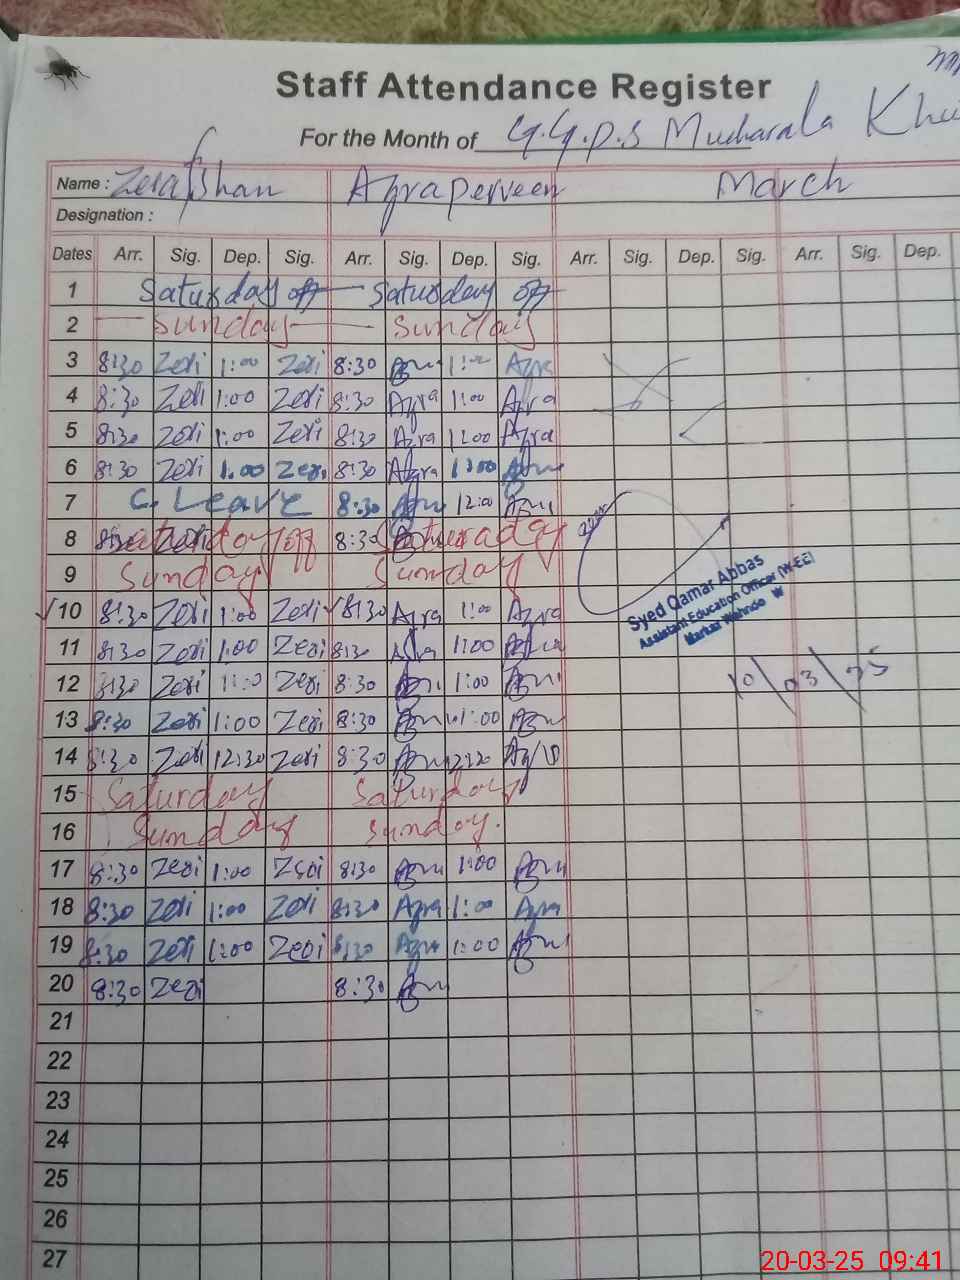 Staff Attendance Register
For the Month of G.G.P.S Mucharala
Name : Zerafshan Azra perveen March
Designation :
Dates Arr. Sig. Dep. Sig. Arr. Sig. Dep. Sig. Arr. Sig. Dep. Sig. Arr. Sig. Dep.
1 Saturday off Saturday off
2 Sunday Sunday
3 8:30 Zeri 1:00 Zeri 8:30 Azra 1:00 Azra
4 8:30 Zeri 1:00 Zeri 8:30 Azra 1:00 Azra
5 8:30 Zeri 1:00 Zeri 8:30 Azra 1:00 Azra
6 8:30 Zeri 1:00 Zeri 8:30 Azra 1:00 Azra
7 C. Leave 8:30 Azra 12:00 Azra
8 Saturday off 8:30 Saturaday
9 Sunday Sunday
10 8:30 Zeri 1:00 Zeri 8:30 Azra 1:00 Azra
Syed Qamar Abbas
Assistant Education Officer (W-EE)
Markaz Wahndo W
11 8:30 Zeri 1:00 Zeri 8:30 Azra 1:00 Azra
12 8:30 Zeri 1:00 Zeri 8:30 Azra 1:00 Azra
10/03/25
13 8:30 Zeri 1:00 Zeri 8:30 Azra 1:00 Azra
14 8:30 Zeri 12:30 Zeri 8:30 Azra 12:30 Azra
15 Saturday Saturday
16 Sunday Sunday.
17 8:30 Zeri 1:00 Zeri 8:30 Azra 1:00 Azra
18 8:30 Zeri 1:00 Zeri 8:30 Azra 1:00 Azra
19 8:30 Zeri 1:00 Zeri 8:30 Azra 1:00 Azra
20 8:30 Zeri 8:30 Azra
21
22
23
24
25
26
27
20-03-25 09:41